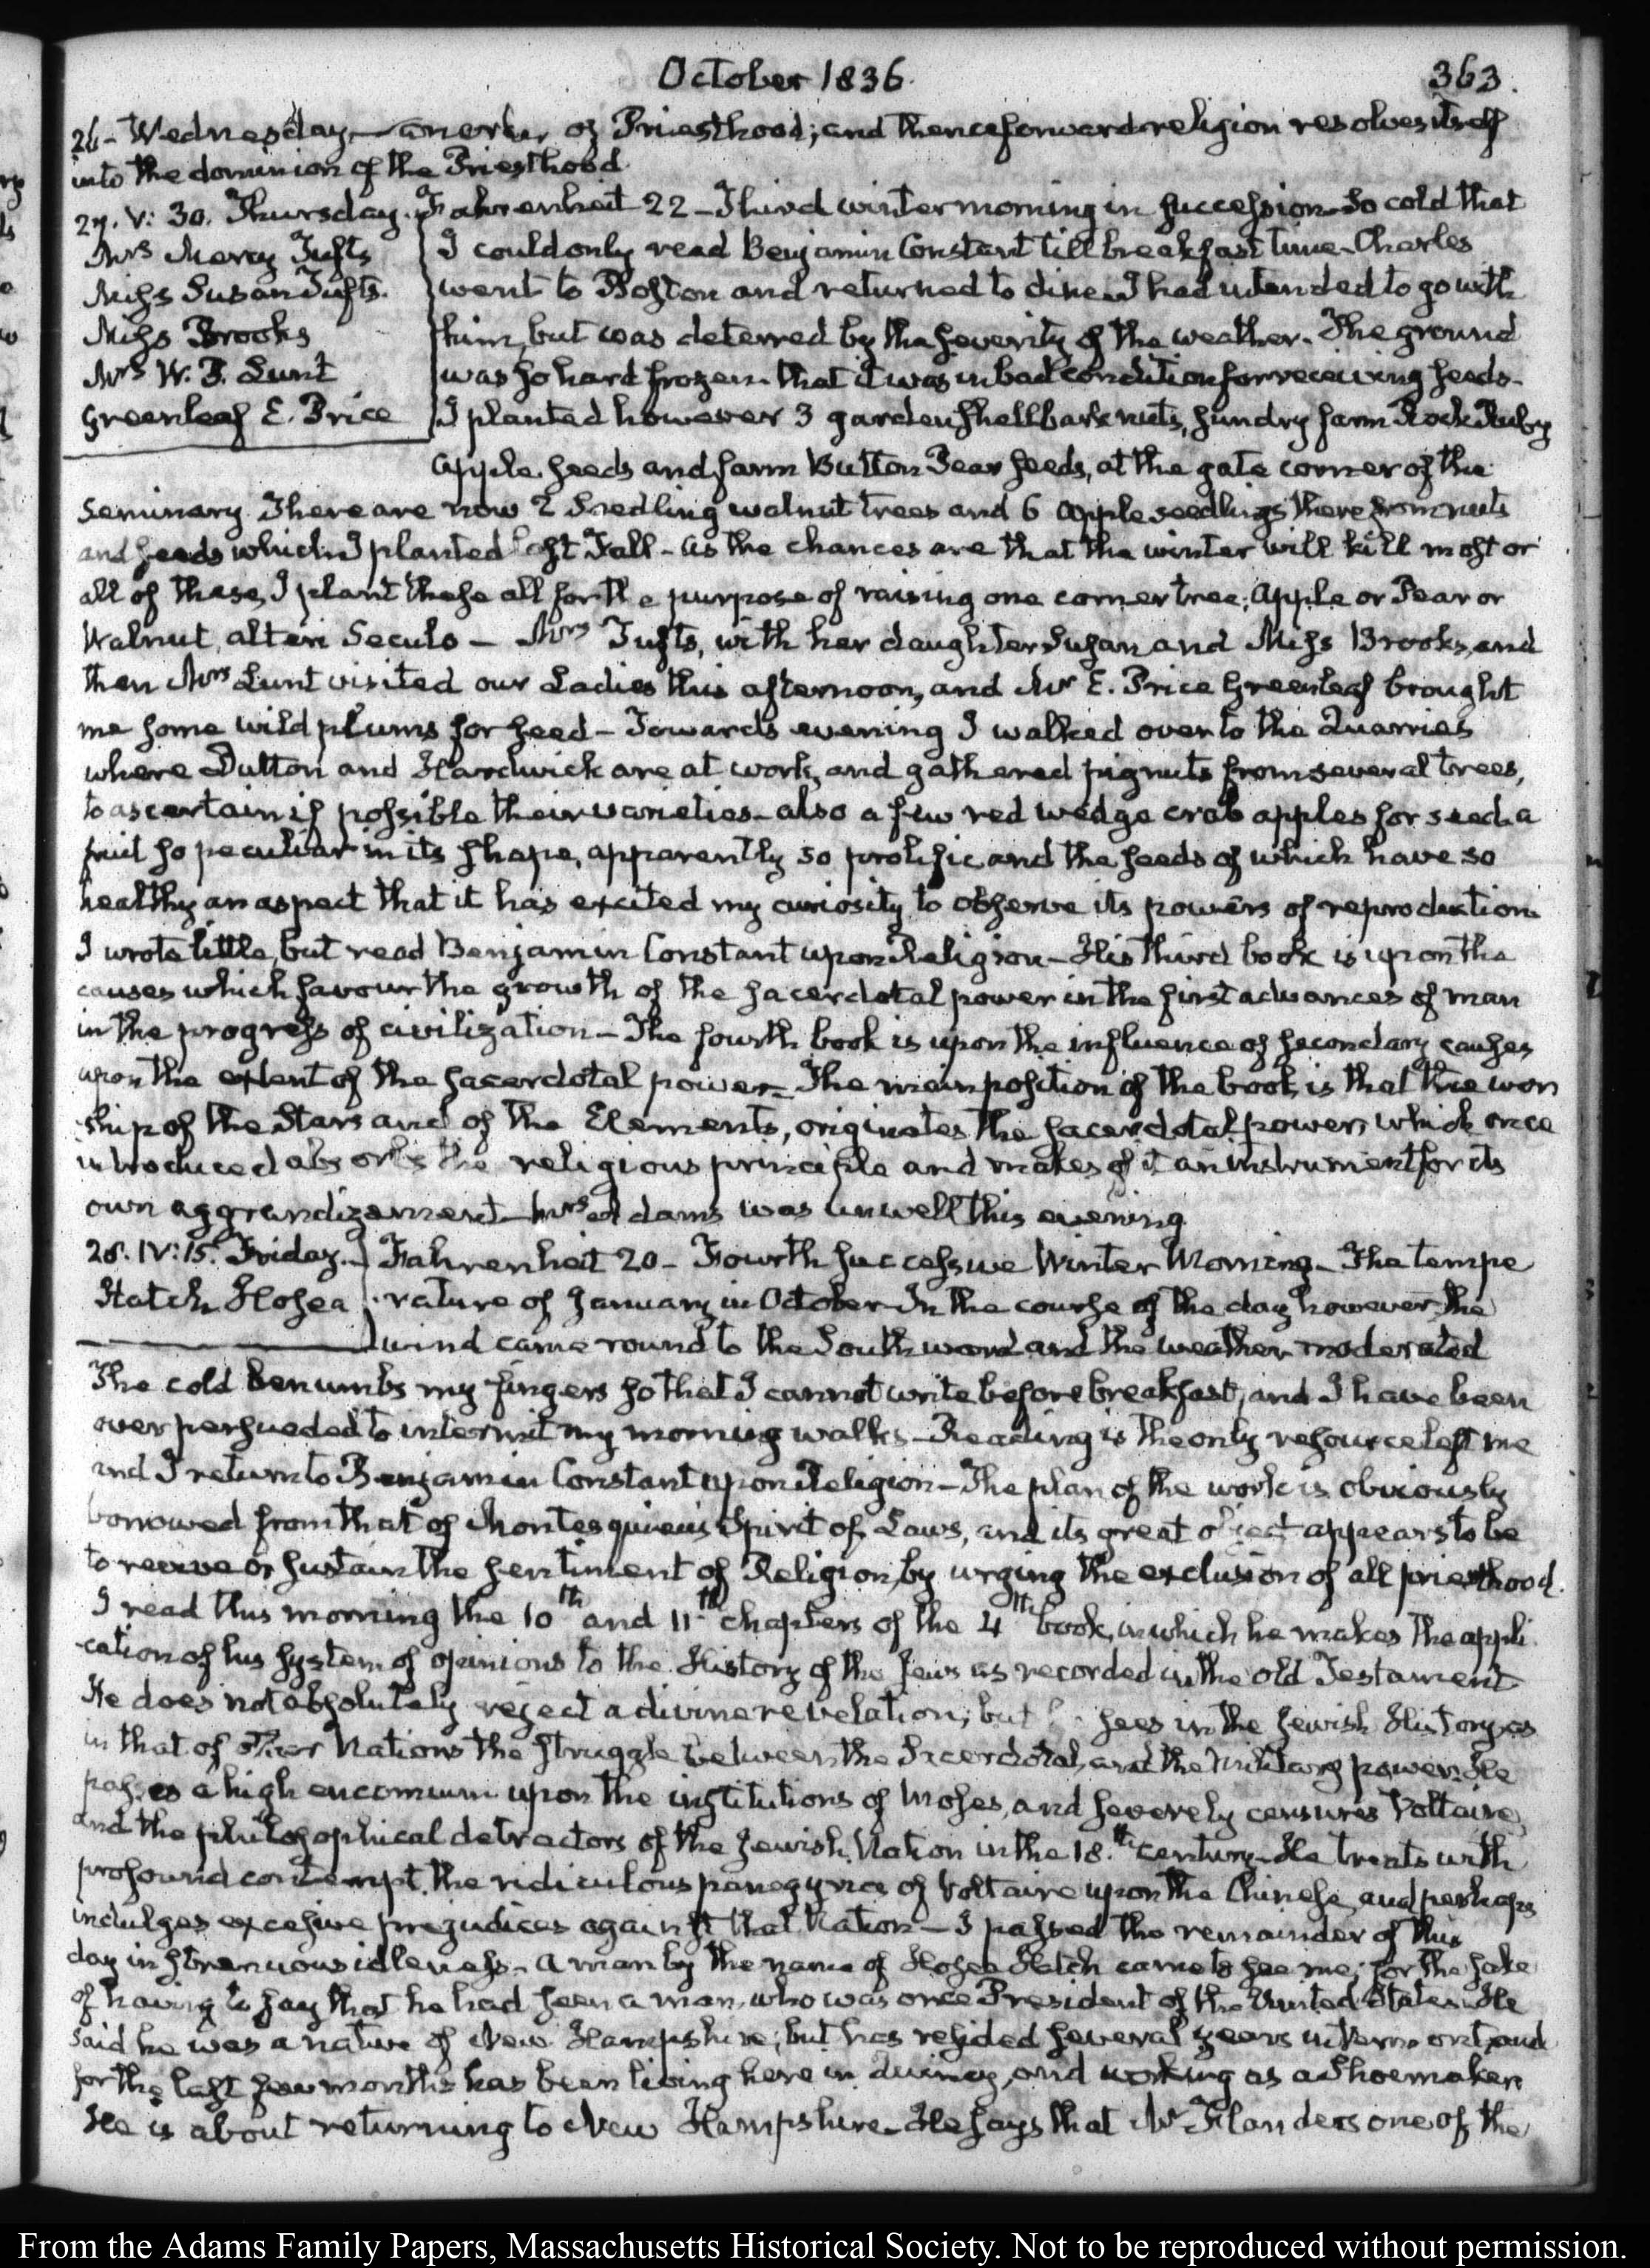 October 1836. 363.
26- Wednesday of Priesthood; and thenceforward religion resolves itself
into the dominion of the Priesthood.
27. V: 30. Thursday. Fahrenheit 22 - Third winter morning in succession - So cold that
Mrs Mercy Tufts I could only read Benjamin Constant till breakfast time - Charles
Miss Susan Tufts. went to Boston and returned to dine. I had intended to go with
Miss Brooks him, but was deterred by the severity of the weather. The ground
Mrs W. P. Lunt was so hard frozen that it was in bad condition for receiving seeds -
Greenleaf E. Price I planted however 3 garden shellbark nuts, sundry farm Rock Ruby
apple seeds and farm Button Pear seeds, at the gate corner of the
Seminary. There are now 2 Seedling walnut trees and 6 apple seedlings there from nuts
and seeds which I planted last Fall - as the chances are that the winter will kill most or
all of these, I plant these all for the purpose of raising one corner tree; apple or Pear or
Walnut, alteri Seculo - Mrs Tufts, with her daughter Susan and Miss Brooks, and
then Mrs Lunt visited our Ladies this afternoon, and Mr E. Price Greenleaf brought
me some wild plums for seed - Towards evening I walked over to the Quarries
where Dutton and Hardwick are at work, and gathered pignuts from several trees,
to ascertain if possible their varieties - also a few red wedge crab apples for seed. a
fruit so peculiar in its shape, apparently so prolific and the seeds of which have so
healthy an aspect that it has excited my curiosity to observe its powers of reproduction.
I wrote little, but read Benjamin Constant upon Religion - His third book is upon the
causes which favour the growth of the sacerdotal power in the first advances of man
in the progress of civilization - The fourth book is upon the influence of secondary causes
upon the extent of the sacerdotal power - The main position of the book is that the wor
ship of the Stars and of the Elements, originates the sacerdotal power, which once
introduced absorbs the religious principle and makes of it an instrument for its
own aggrandizement - Mrs Adams was unwell this evening.
28. IV: 15. Friday. Fahrenheit 20 - Fourth successive Winter Morning - The tempe
Hatch Hosea rature of January in October - In the course of the day however the
wind came round to the Southward and the weather moderated
The cold benumbs my fingers so that I cannot write before breakfast, and I have been
over persueded to intermit my morning walks - Reading is the only resource left me
and I return to Benjamin Constant upon Religion - The plan of the work is obviously
borrowed from that of Montesquieu's Spirit of Laws, and its great object appears to be
to revive or sustain the sentiment of Religion, by urging the exclusion of all priesthood.
I read this morning the 10th and 11th chapters of the 4th book, in which he makes the appli
cation of his system of opinions to the History of the Jews as recorded in the old Testament
He does not absolutely reject a divine revelation; but sees in the Jewish History as
in that of other Nations the struggle between the Sacerdotal, and the military power. He
passes a high encomium upon the institutions of Moses, and severely censures Voltaire,
and the philosophical detractors of the Jewish Nation in the 18.th century - He treats with
profound contempt the ridiculous panegyrics of Voltaire upon the Chinese, and perhaps
indulges excessive prejudices against that Nation - I passed the remainder of this
day in strenuous idleness - A man by the name of Hosea Hatch came to see me; for the sake
of having to say that he had seen a man, who was once President of the United States. He
said he was a native of New Hampshire; but has resided several years in Vermont, and
for the last few months has been living here in Quincy, and working as a Shoemaker
He is about returning to New Hampshire - He says that Mr Flanders one of the
From the Adams Family Papers, Massachusetts Historical Society. Not to be reproduced without permission.